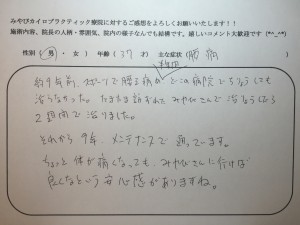 みやびカイロプラクティック療院に対するご感想をよろしくお願いいたします！！
施術内容、院長の人柄・雰囲気、院内の様子なんでも結構です。嬉しいコメント大歓迎です (*^_^*)
性別（男・女） 年齢（37）才 主な症状（腰痛
約9年前、スポーツで腰を痛め どこの病院でもどうしても
治らなかった。たまたま訪ずれた みやびさんで治療したら
2週間で治りました。
それから9年、メンテナンスで通っています。
ちょっと体が痛くなっても、みやびさんに行けば
良くなるという安心感がありますね。